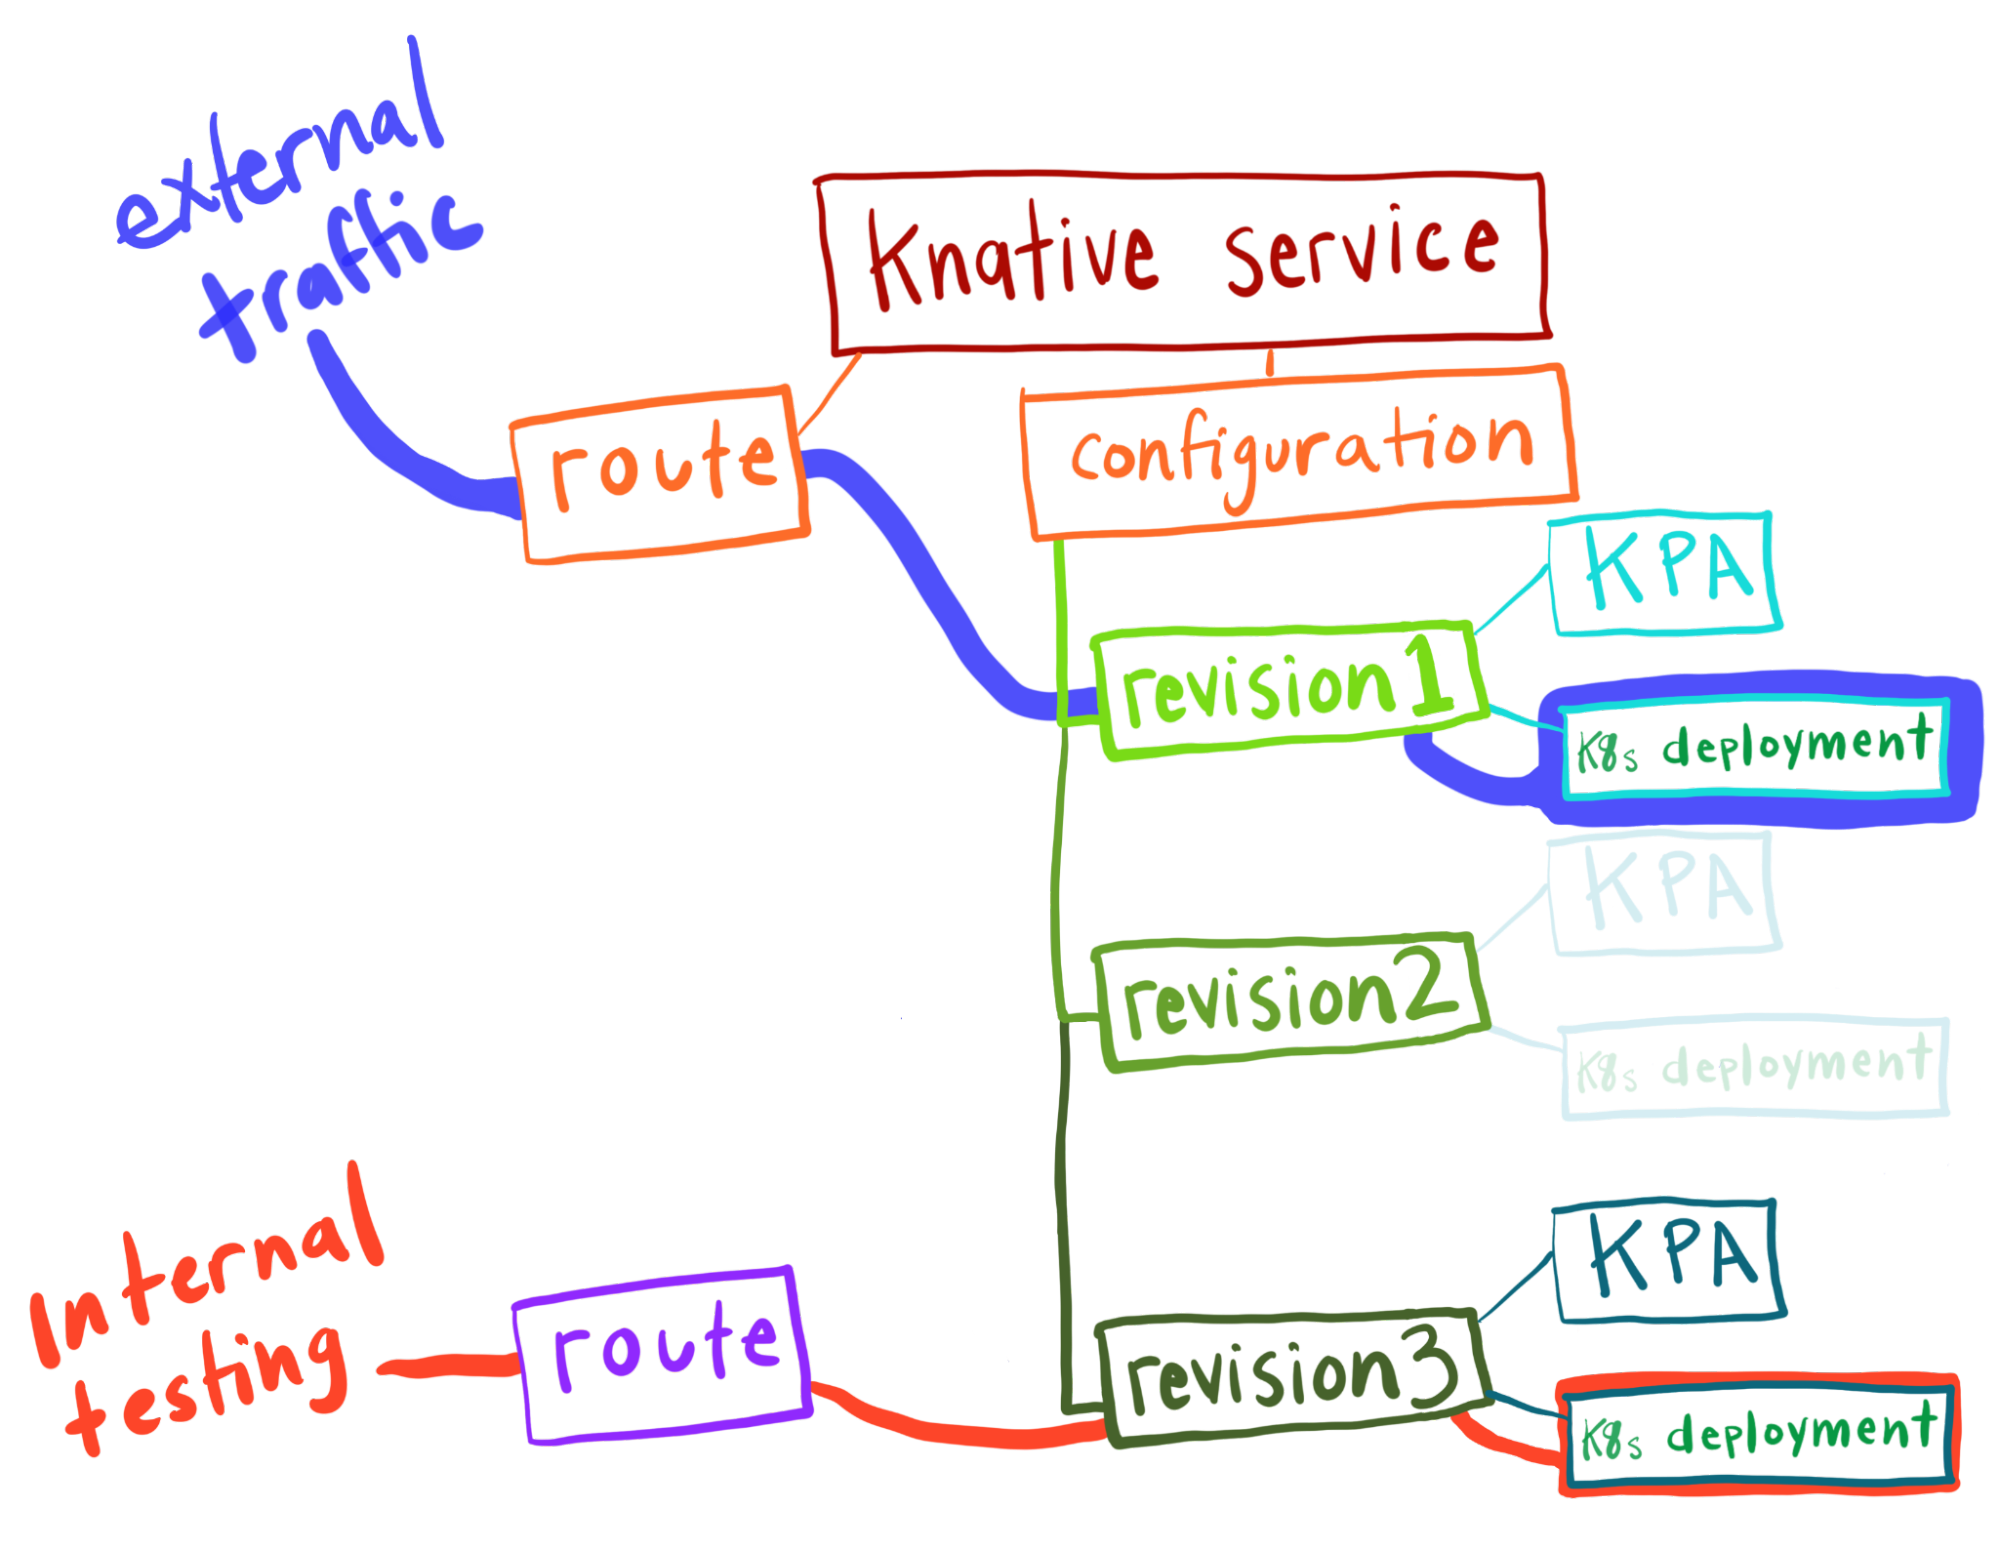 external
traffic
Knative service
route
configuration
KPA
revision 1
K8s deployment
KPA
revision 2
K8s deployment
Internal
testing
route
KPA
revision 3
K8s deployment